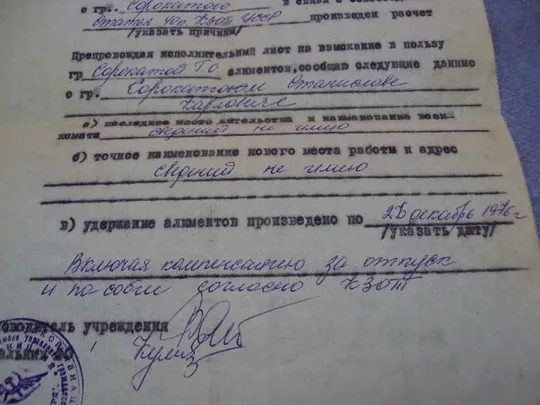 с гр. Сорокатого в связи с
статья КЗОТ УССР произведен расчет
/указать причины/
Препровождая исполнительный лист на взыскание в пользу
гр Сорокатой алиментов, сообщаю следующие данные
о гр. Сорокатюком Станиславе
Карловиче
а) последнее место жительства и наименование воен
комата сведений не имею
б) точное наименование нового места работы и адрес
сведений не имею
в) удержание алиментов произведено по декабрь 1976 г
/указать дату/
Включая компенсацию за отпуск
и пособие согласно КЗОТ
ководитель учреждения